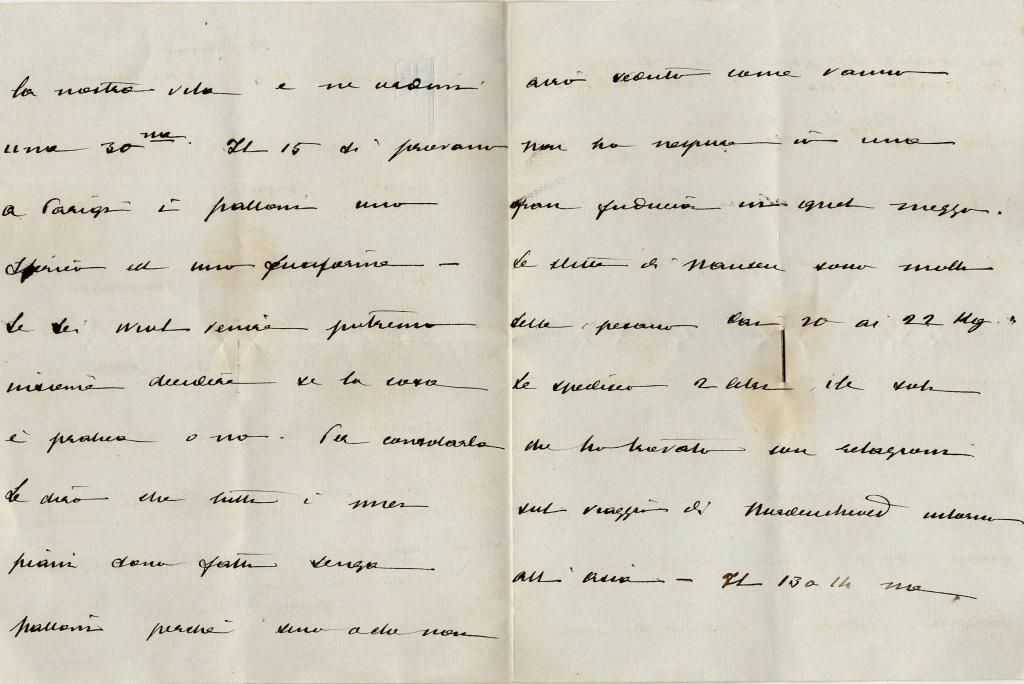 la nostra vita e ne ordini
una 30na. Il 15 si provano
a Parigi i palloni uno
sferico ed uno fusiforme –
Se Lei vuol venire potremo
insieme decidere se la cosa
è pratica o no. Per consolarla
Le dirò che tutti i miei
piani sono fatti senza
palloni perché sino a che non
avrò veduto come vanno
non ho neppure io una
gran fiducia in quel mezzo.
Le slitte di Nansen sono molto
belle pesano dai 20 ai 22 Kg.
Le spedisco 2 libri i soli
che ho trovato con
sul viaggio di Nordenskiold intorno
all'Asia – Il 13 o 14 ma